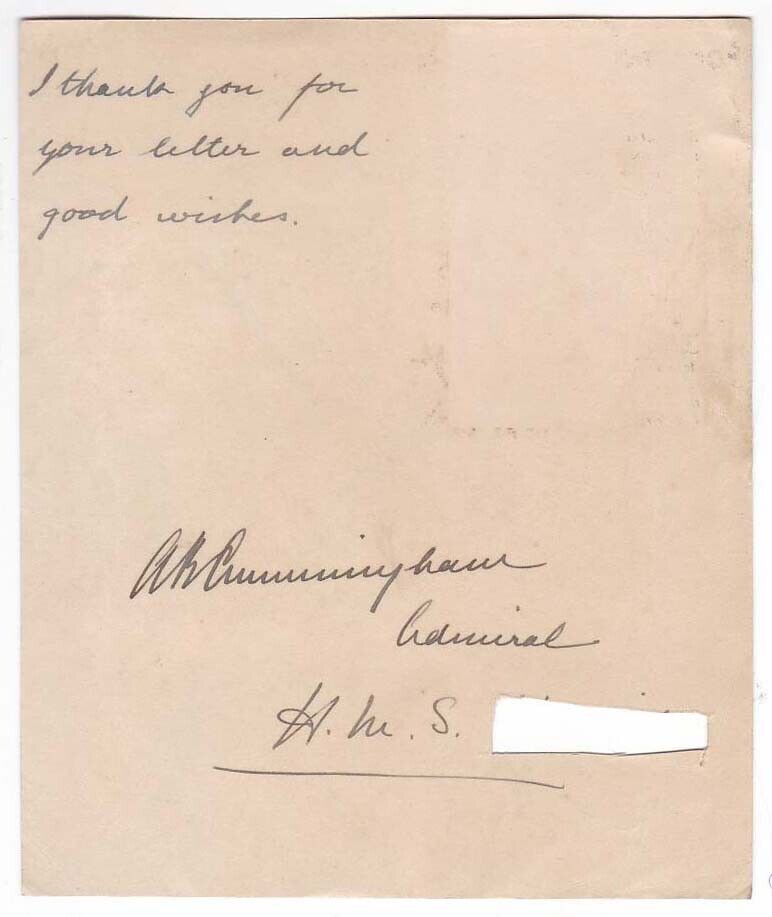 I thank you for
your letter and
good wishes.
A B Cunningham
Admiral
H. M. S.